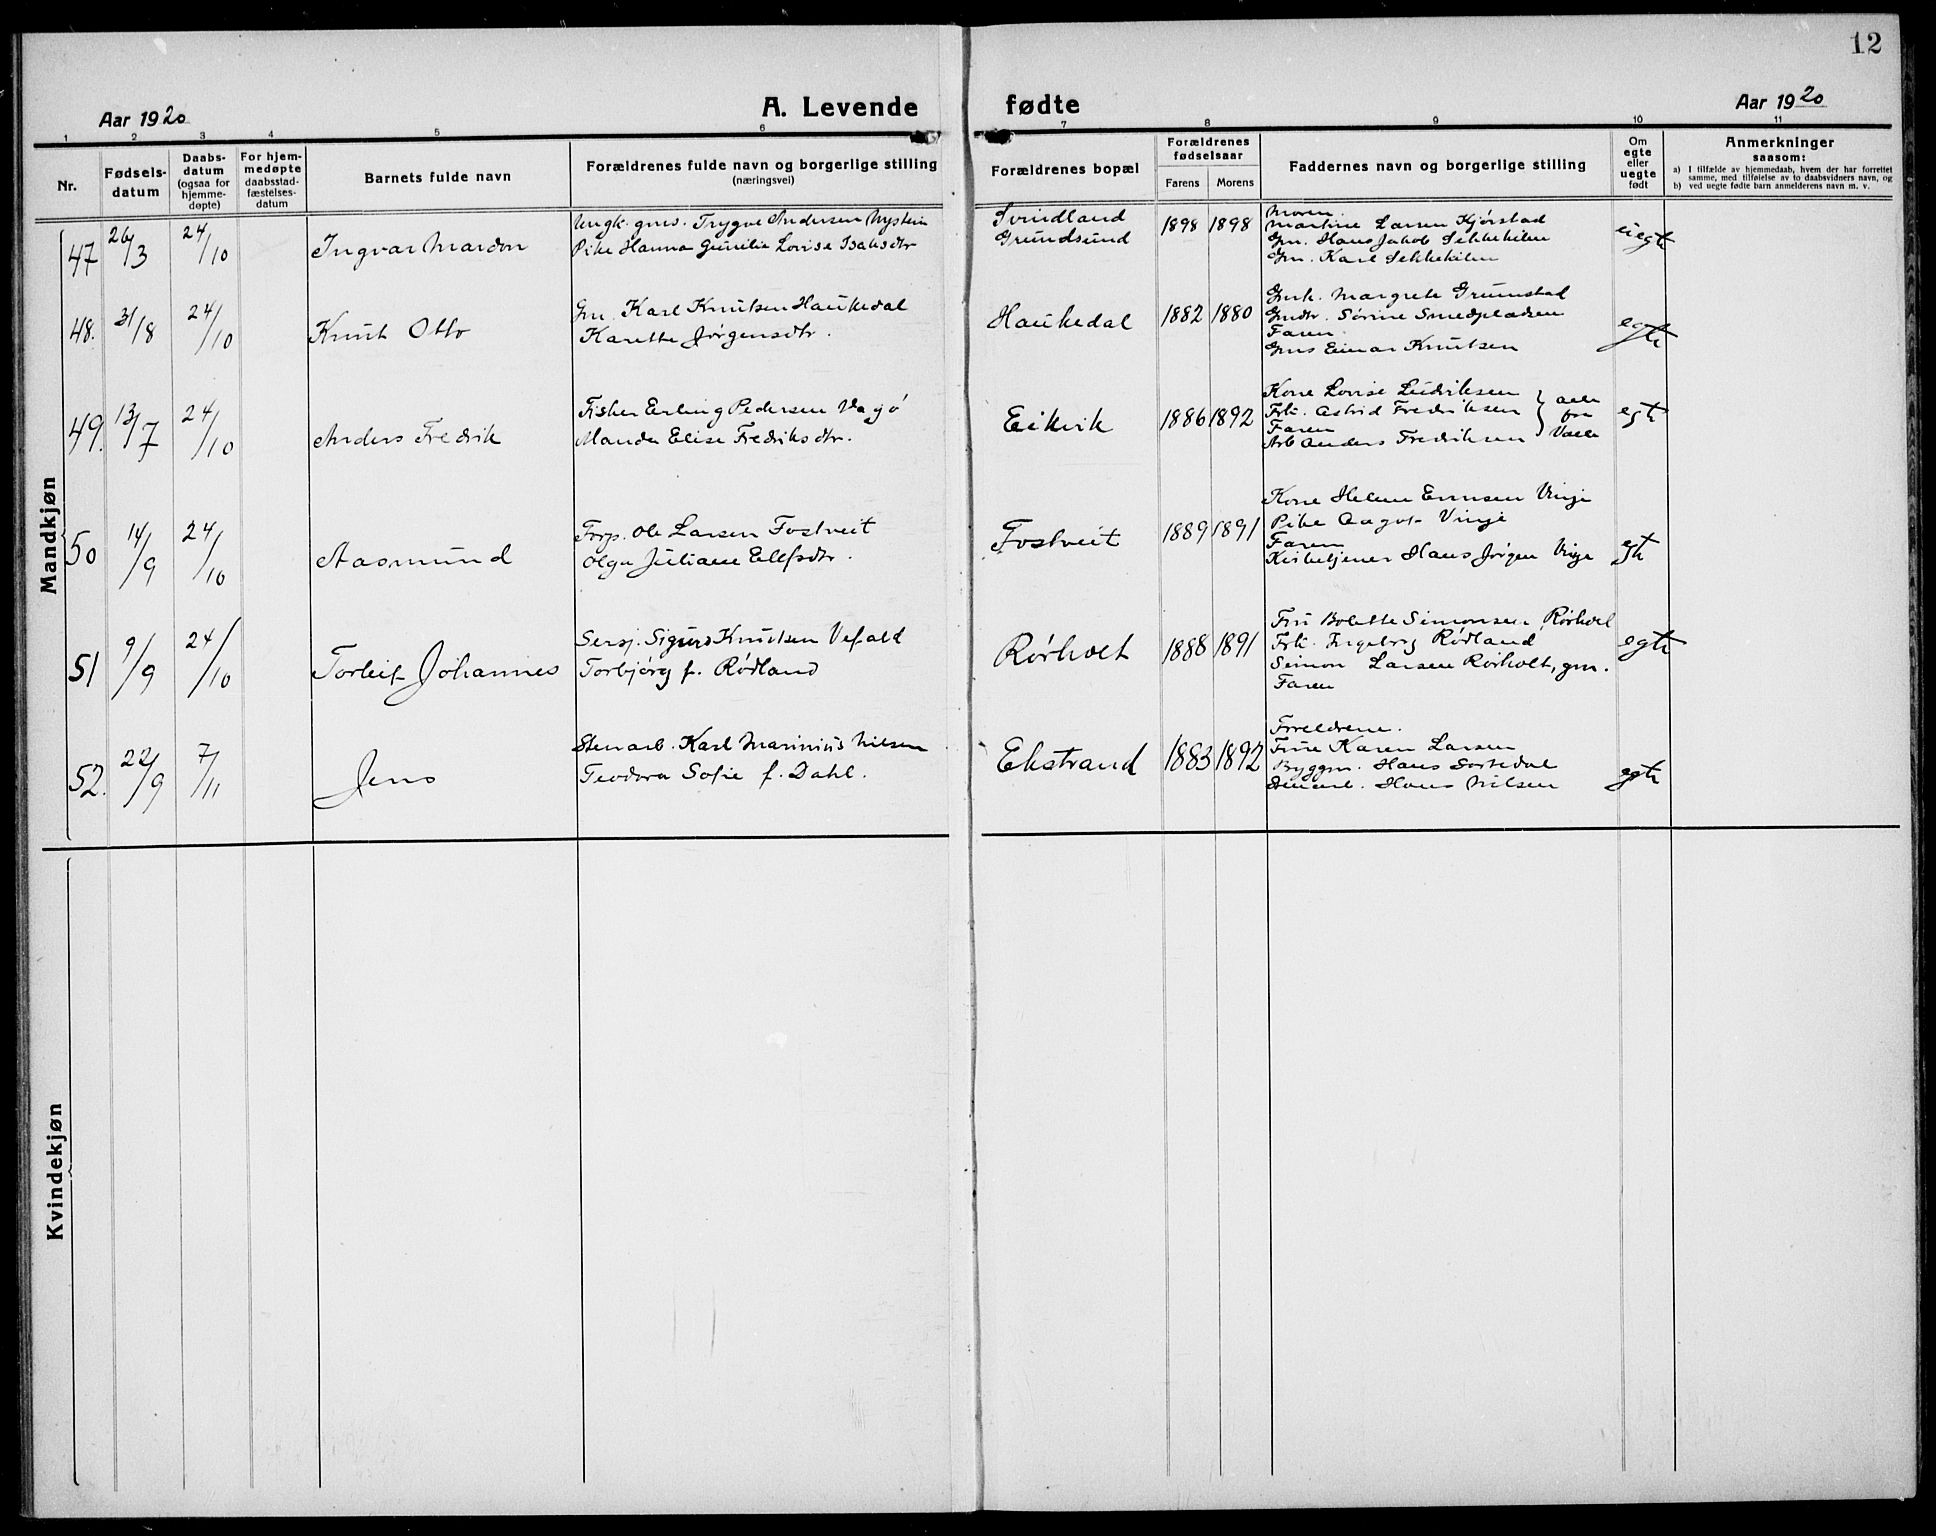 12
Aar 1920
A. Levende fødte
Aar 1920
1 2 3 4 5 6 7 8 9 10 11
Nr.
Fødsels-
datum
Daabs-
datum
(ogsaa for
hjemme-
døpte)
For hjem-
medøpte
daabsstad-
fæstelses-
datum
Barnets fulde navn
Forældrenes fulde navn og borgerlige stilling
(næringsvei)
Forældrenes bopæl
Forældrenes
fødselsaar
Farens Morens
Faddernes navn og borgerlige stilling
Om
egte
eller
uegte
født
Anmerkninger
saasom:
a) I tilfælde av hjemmedaab, hvem der har forrettet
samme, med tilføielse av to daabsvidners navn, og
b) ved uegte fødte barn anmelderens navn m. v.
Mandkjøn
47 26/3 24/10 Ingvar Mardon
Ungk. gms. Trygve Andersen Nystein
Pike Hanna Gunelie Lovise Isaksdtr
Svindland
Grundsund
1898 1898
Moren
Martine Larsen Kjørstad
Gm. Hans Jakob Sekkekilen
Gm. Karl Sekkekilen
uegte
48. 31/8 24/10 Knut Otto
Gm. Karl Knutsen Haukedal
Karette Jørgensdtr.
Haukedal
1882 1880
Gmk. Margrete Grumstad
Gmdtr. Sørine Smedpladsen
Faren
Gms Einar Knutsen
egte
49. 13/7 24/10 Anders Fredrik
Fisker Erling Pedersen Vagø
Manda Elise Fredriksdtr.
Eikvik
1886 1892
Kone Lovise Ludriksen
Frk. Astrid Fredriksen
Faren
Arb Anders Fredriksen
alle
fra
Valle
egte
50 14/9 24/10 Aasmund
Forp. Ole Larsen Fostveit
Olga Juliane Ellefsdtr.
Fostveit
1889 1891
Kone Helene Vinje
Pike Aagot Vinje
Faren
Kirketjener Hans Jørgen Vinje
egte
51 9/9 24/10 Torleif Johannes
Sersj. Sigurd Knutsen Vefald
Torbjørg f. Rødland
Rørholt
1888 1891
Fru Bolette Simonsen Rørholt
Frk. Ingeborg Rødland
Simon Larsen Rørholt, gm.
Faren
egte
52. 22/9 7/11 Jens
Stenarb. Karl Marinius Nilsen
Teodora Sofie f. Dahl.
Ekstrand
1883 1892
Foreldrene.
Frue Karen Larsen
Byggm. Hans Sortedal
Stenarb. Hans Nilsen
egte
Kvindekjøn